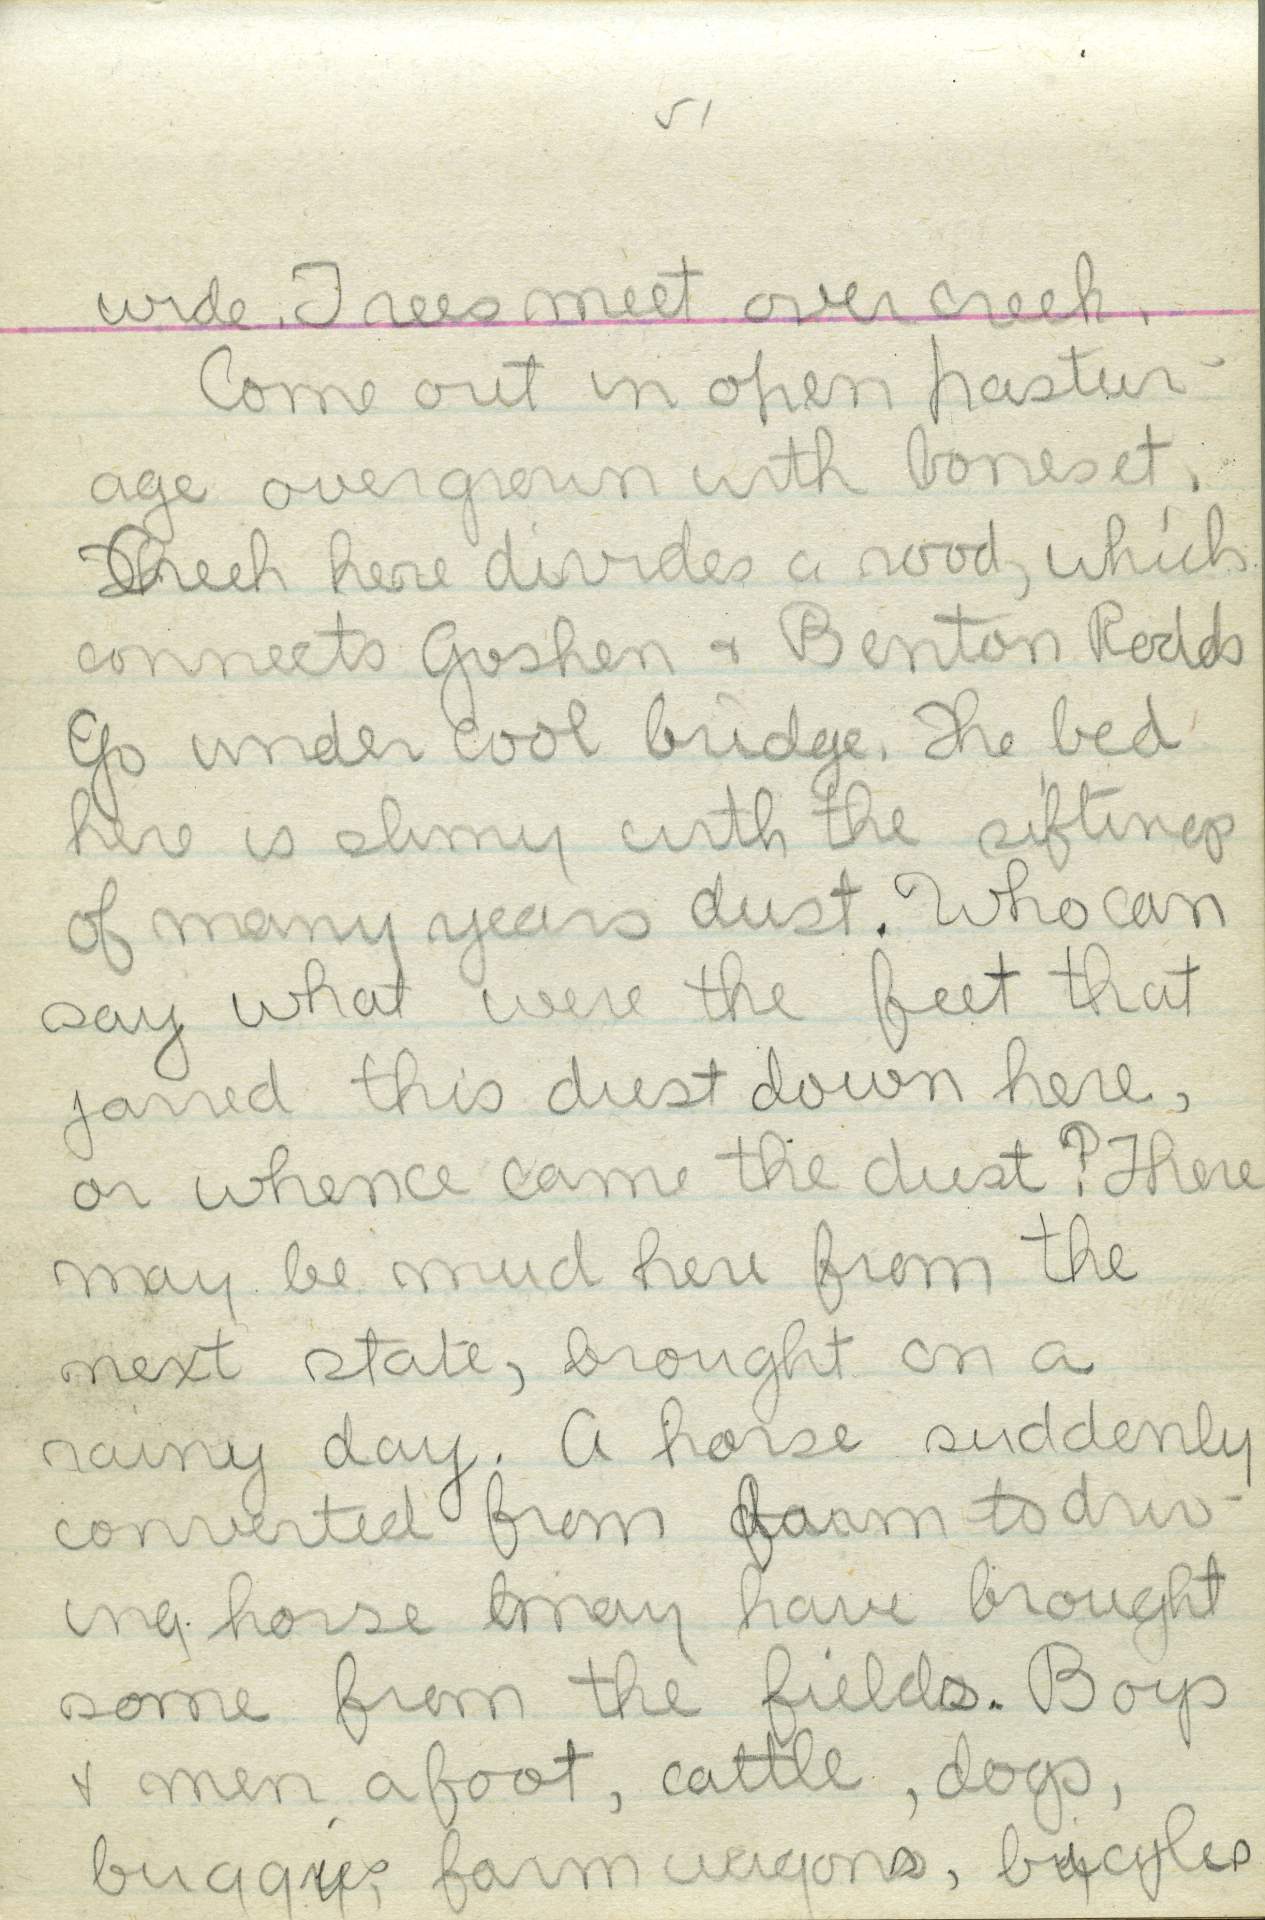 51
wide. Trees meet over creek.
Come out in open pastur-
age overgrown with boneset.
Creek here divides a road, which
connects Goshen & Benton Roads
Go under cool bridge. The bed
here is slimy with the siftings
of many years dust. Who can
say what were the feet that
jarred this dust down here,
or whence came the dust? There
may be mud here from the
next state, brought on a
rainy day. A horse suddenly
converted from farm to driv-
ing horse may have brought
some from the fields. Boys
& men afoot, cattle, dogs,
buggies, farm wagons, bicycles